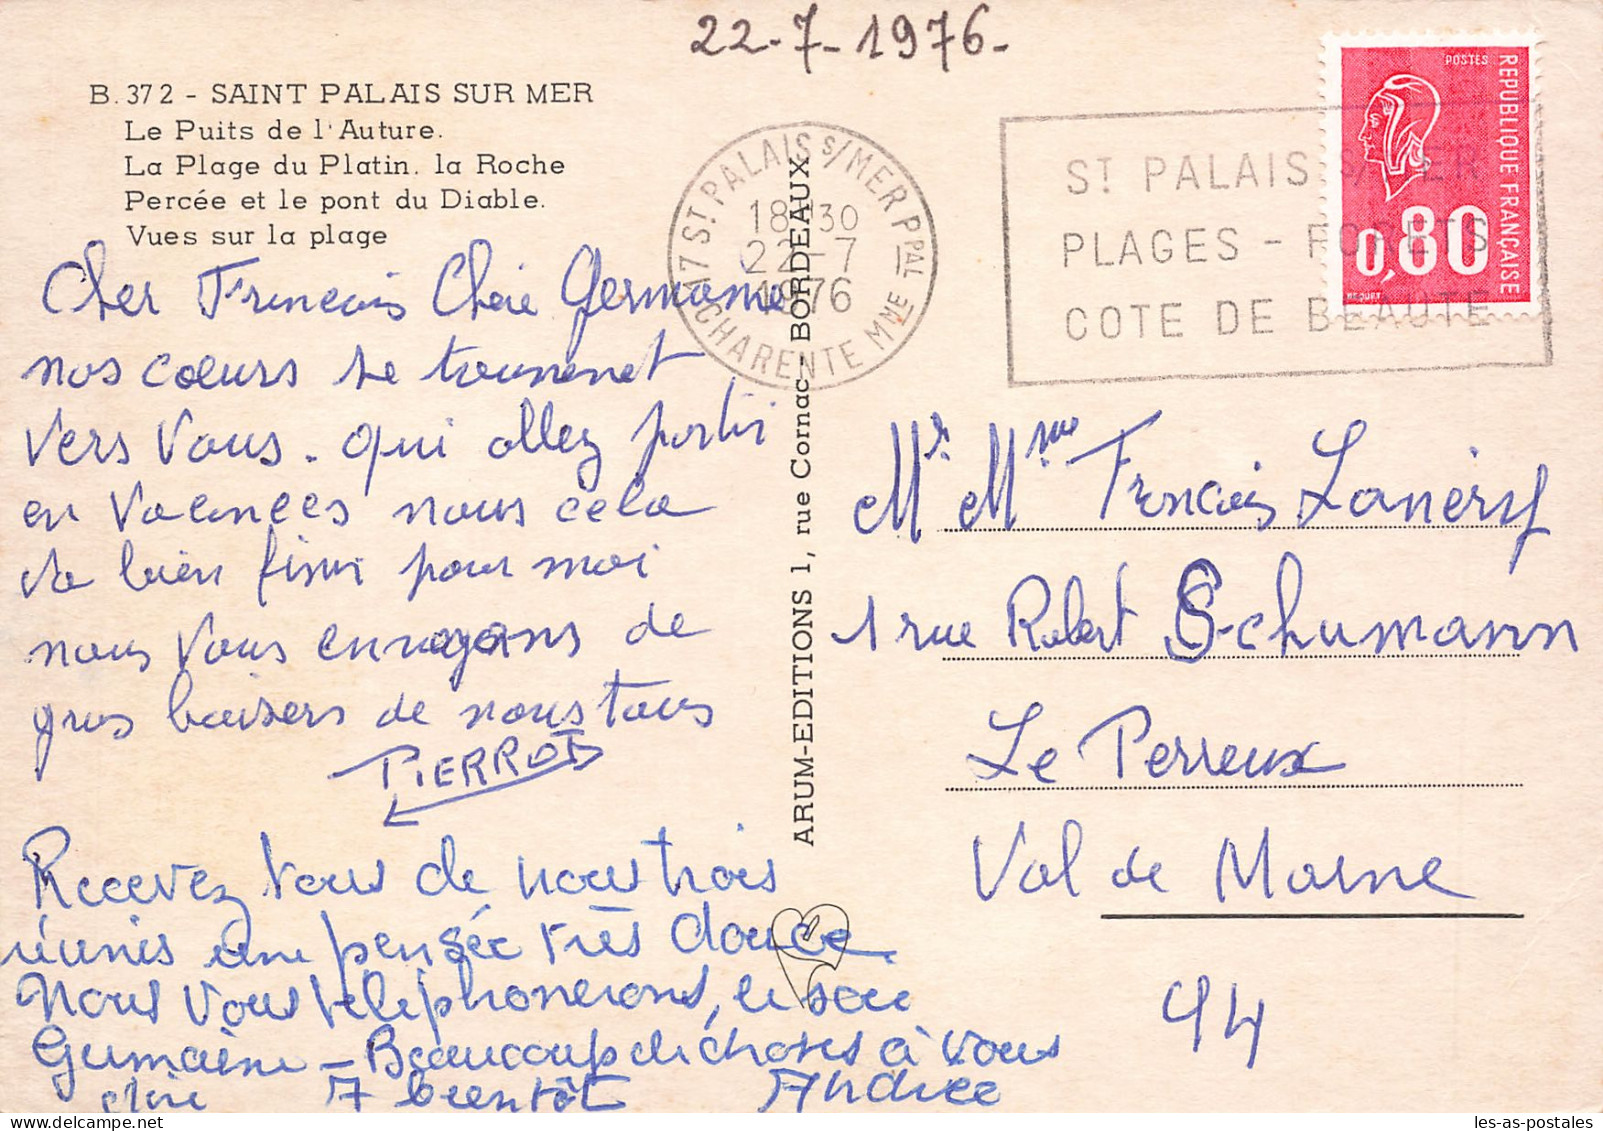 22-7-1976-
B.372 - SAINT PALAIS SUR MER
Le Puits de l'Auture.
La Plage du Platin. la Roche
Percée et le pont du Diable.
Vues sur la plage
17 ST PALAIS S/MER PPAL
18H30
22-7
1976
CHARENTE MME
ST PALAIS S/MER
PLAGES - FORETS
COTE DE BEAUTE
POSTES
REPUBLIQUE FRANÇAISE
0,80
BEQUET
Cher Francois Chère Germaine
nos coeurs se tournent
vers vous. qui allez partir
en vacances nous cela
va bien finir pour moi
nous vous envoyons de
gros baisers de nous tous
PIERROT
Recevez vous de nous trois
réunis une pensée très douce
Nous vous téléphonerons, le soir
Germaine - Beaucoup de choses à vous
A bientôt Andrée
ARUM-EDITIONS 1, rue Cornac - BORDEAUX
Mr Mme Francois
1 rue Robert Schumann
Le Perreux
Val de Marne
94
les-as-postales